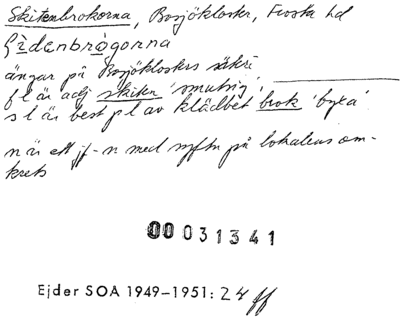 Skitenbrokorna, Bosjökloster, Frosta hd
ʃìdenbrògorna
ängar på Bosjöklosters säteri
f l är adj skiten 'smutsig',
s l är best pl av klädbet brok 'byxa'
n är ett jf-n med syftn på lokalens om-
krets
00 031341
Ejder SOA 1949-1951: 24 ff